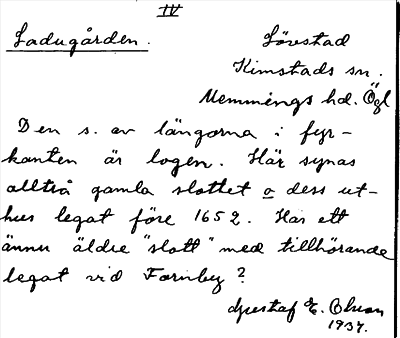 IV
Ladugården.
Lövestad
Kimstads sn.
Memmings hd. Ögl
Den s. av längorna i fyr-
kanten är logen. Här synas
alltså gamla slottet o dess ut-
hus legat före 1652. Har ett
ännu äldre "slott" med tillhörande
legat vid Farnby?
Gustaf E. Olsson
1934.